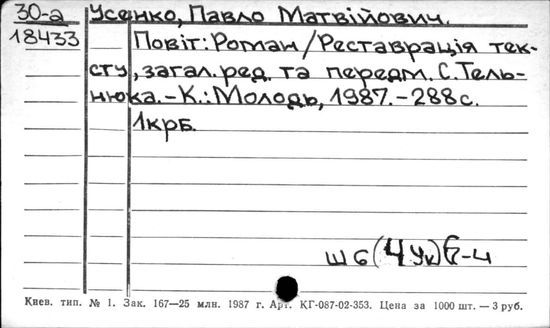 30-а Усенко, Павло Матвійович.
18433 Повіт: Роман / Реставрація тек-
сту, загал. ред. та передм. С. Тель-
нюка. – К.: Молодь, 1987. – 288 с.
1 крб.
Ш6(4Ук)6-4
Киев. тип. № 1. Зак. 167—25 млн. 1987 г. Арт. КГ-087-02-353. Цена за 1000 шт. — 3 руб.